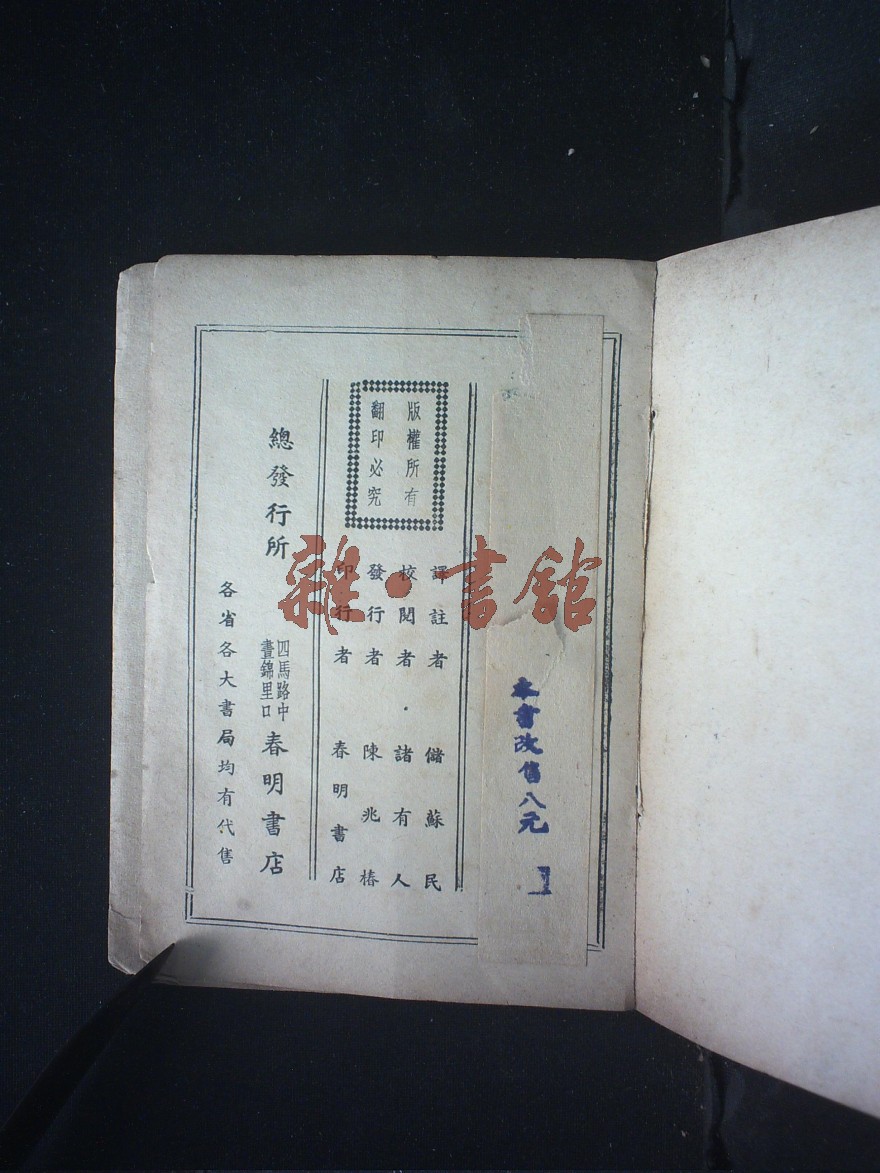 本書改售八元
版權所有
翻印必究
譯註者 儲蘇民
校閱者 諸有人
發行者 陳兆椿
印行者 春明書店
總發行所 四馬路中
晝錦里口 春明書店
各省各大書局均有代售
雜·書館